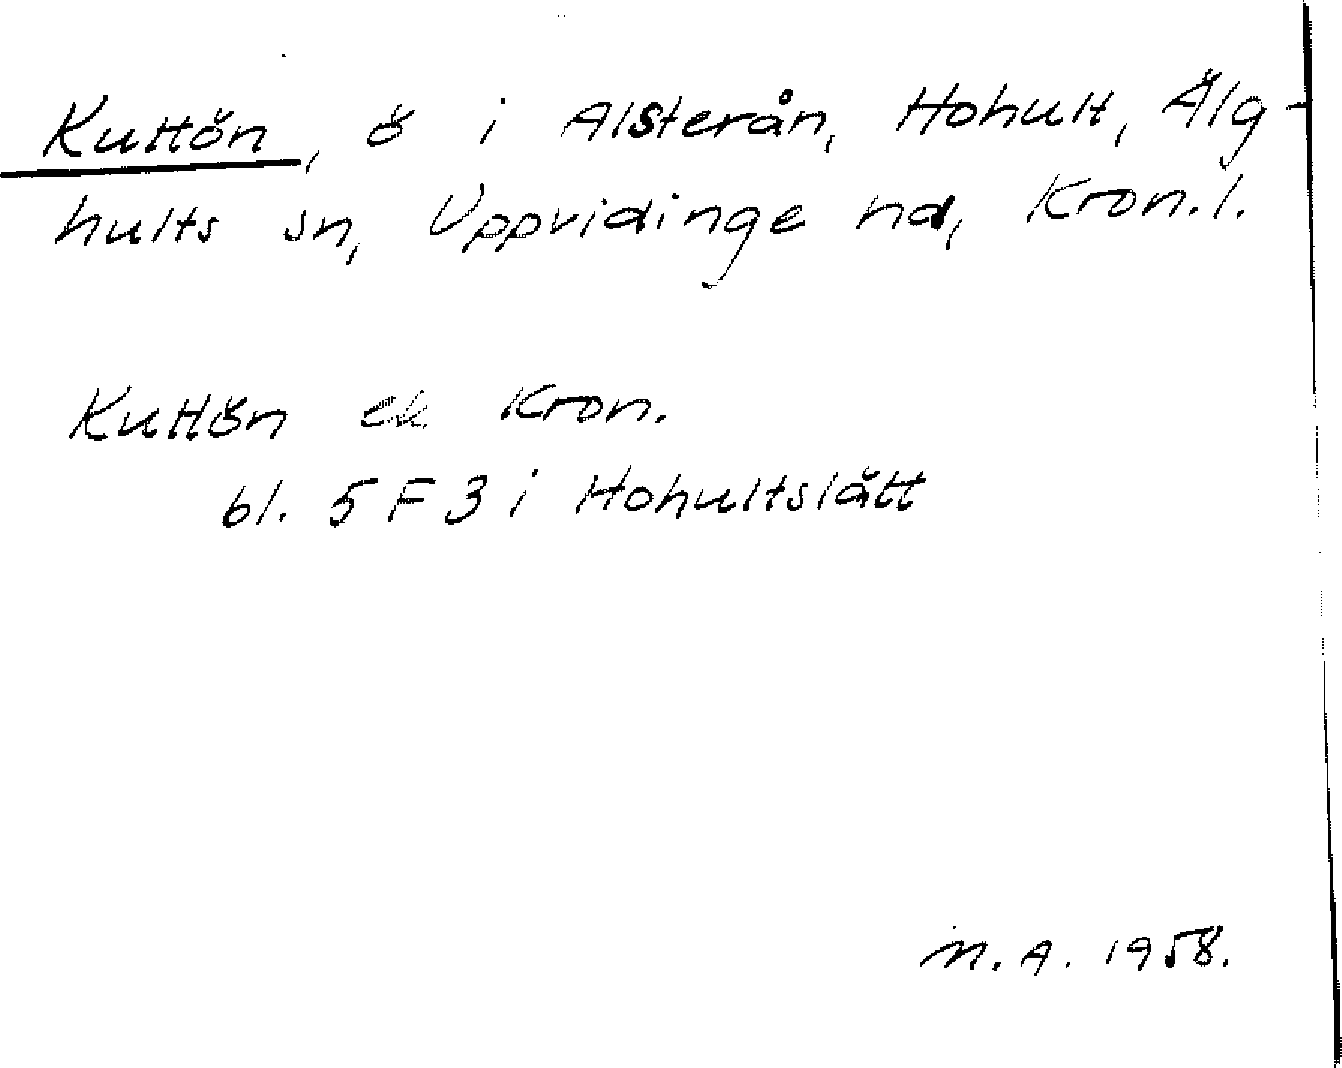 Kuttön, ö i Alsterån, Hohult, Älg-
hults sn, Uppvidinge hd, Kron.l.
Kuttön ek Kron.
bl. 5 F 3 i Hohultslätt
M.A. 1958.